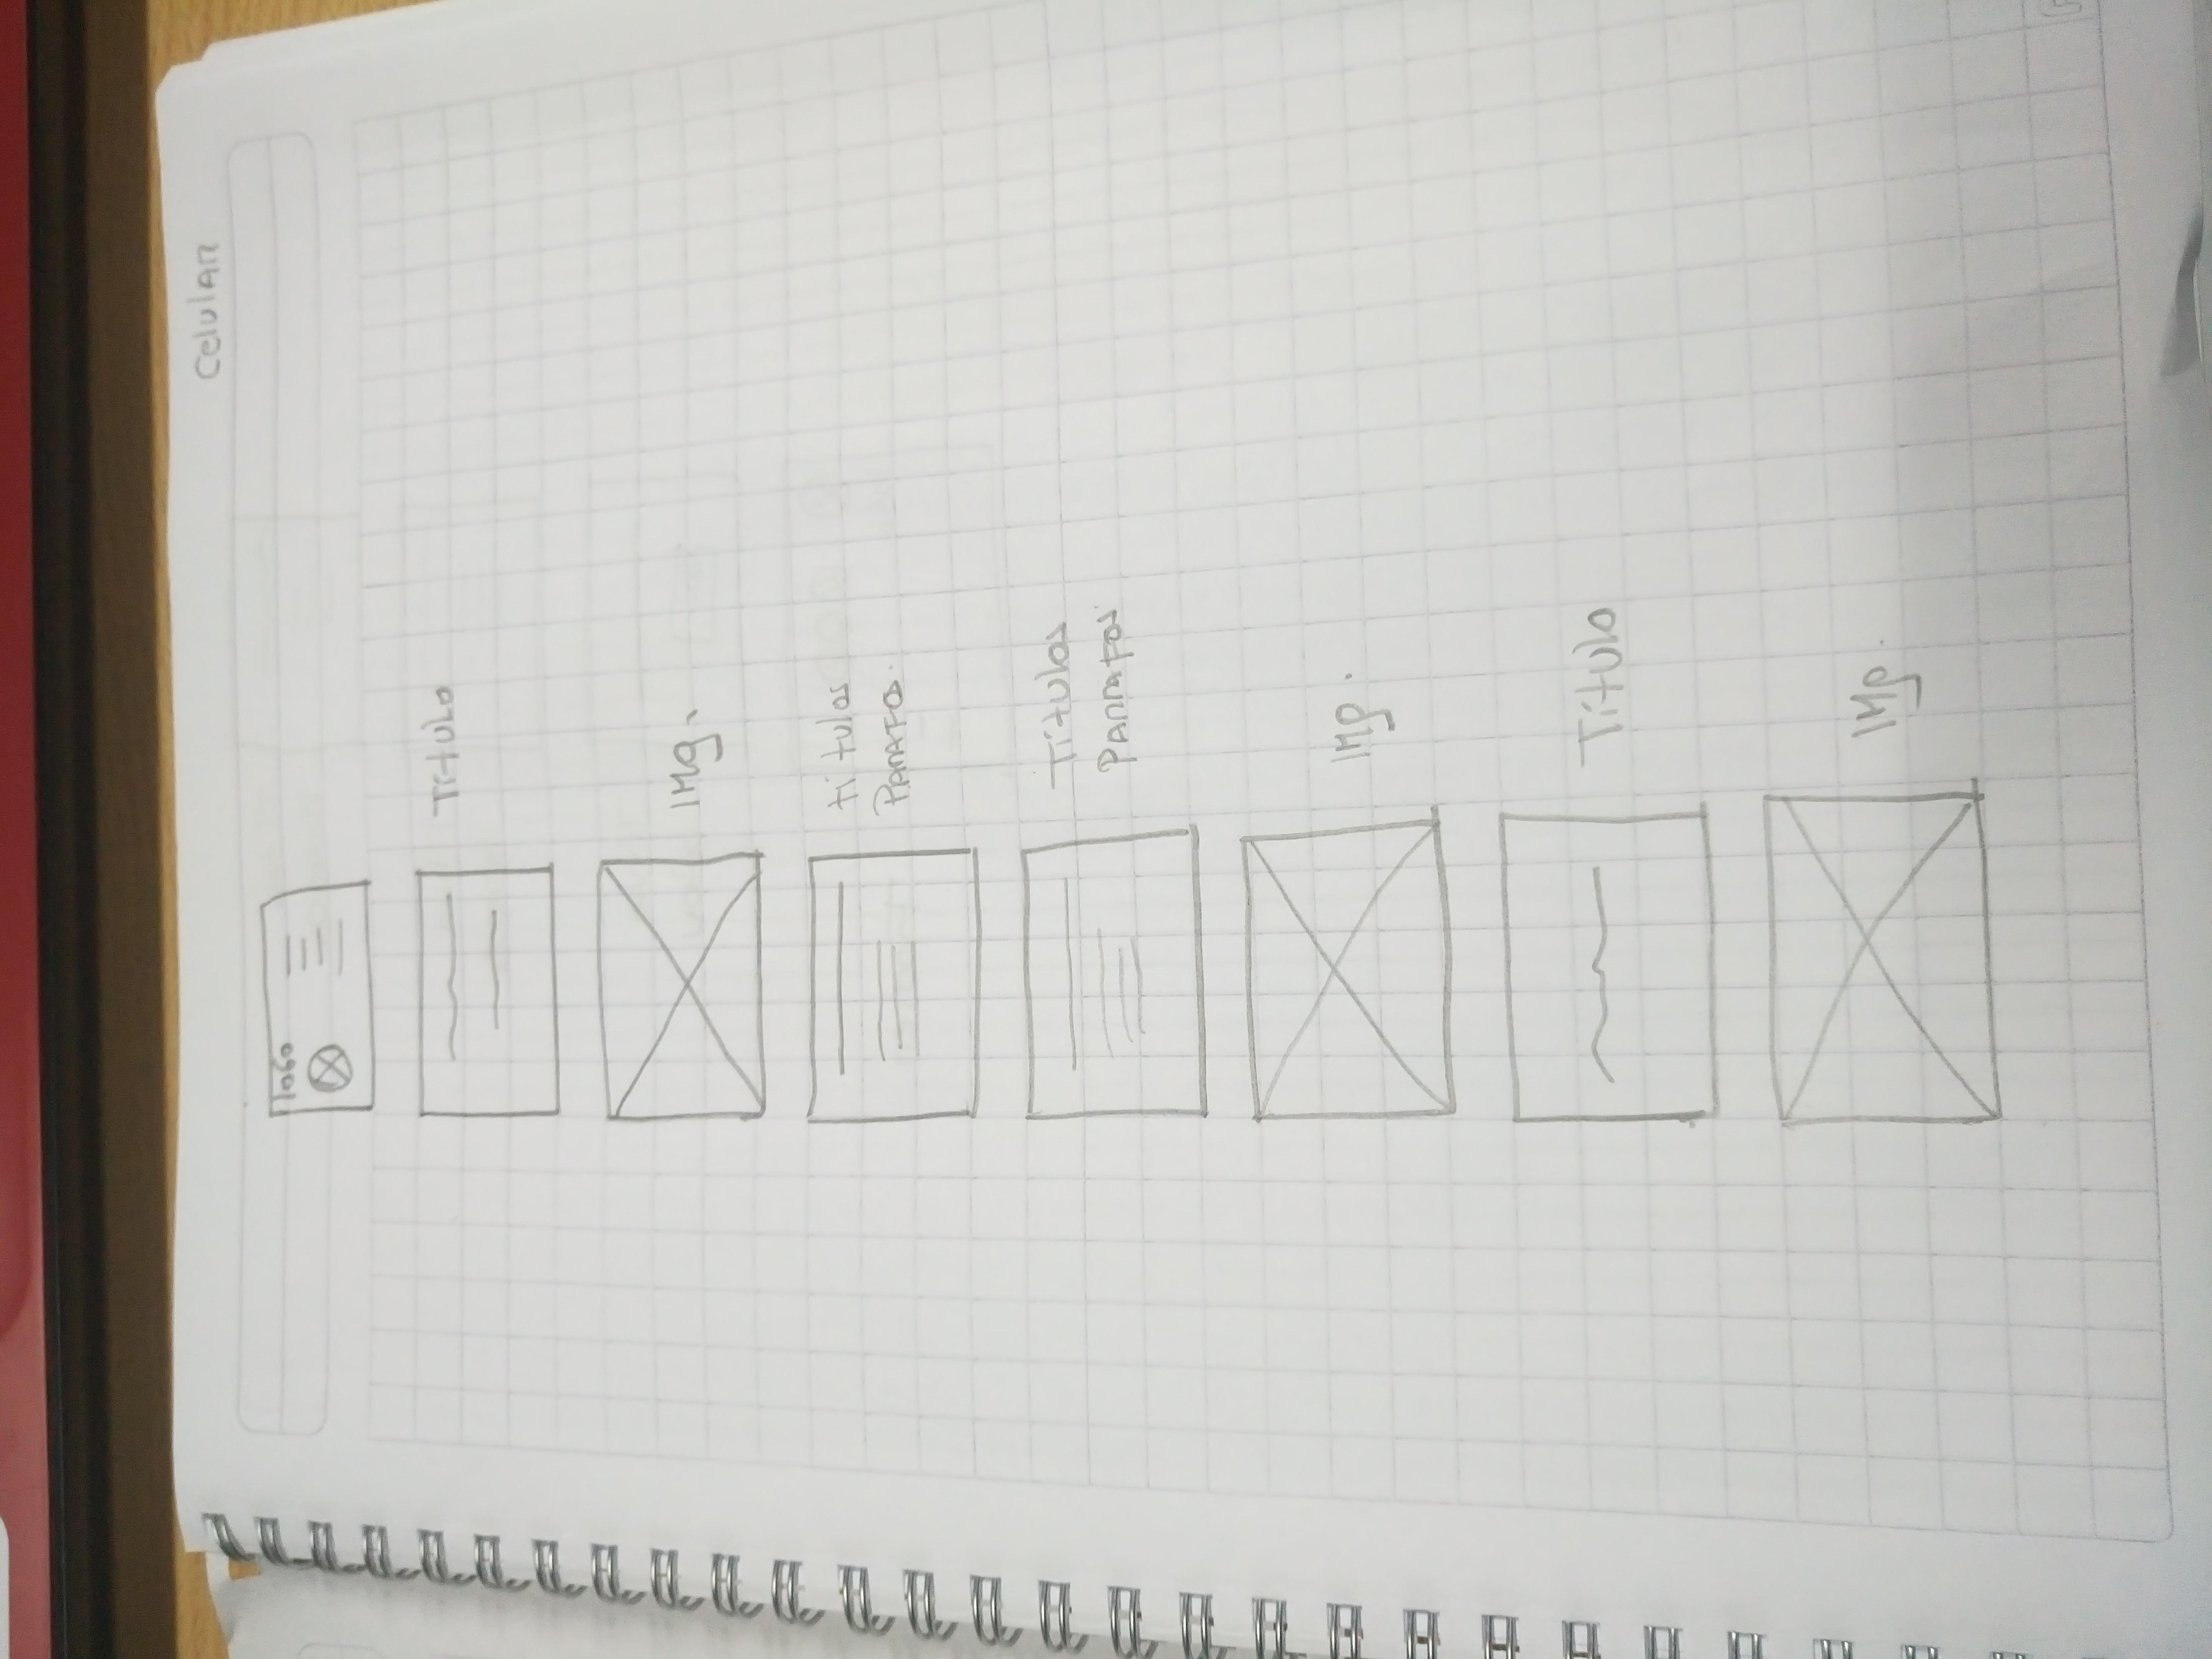 Celular
logo
Titulo
IMg.
títulos
Parrafos.
Títulos
Parrafos
IMg.
Título
IMg.